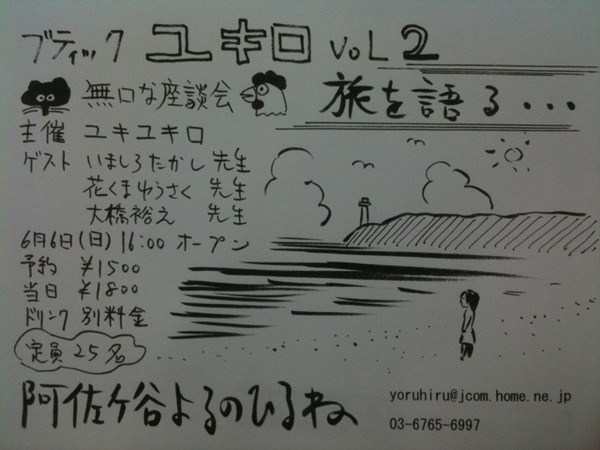 ブティック ユキロ VOL 2
無口な座談会 旅を語る・・・
主催 ユキユキロ
ゲスト いましろたかし 先生
花くまゆうさく 先生
大橋裕之 先生
6月6日(日)16:00 オープン
予約 ¥1500
当日 ¥1800
ドリンク 別料金
定員 25名
阿佐ケ谷よるのひるね
yoruhiru@jcom.home.ne.jp
03-6765-6997